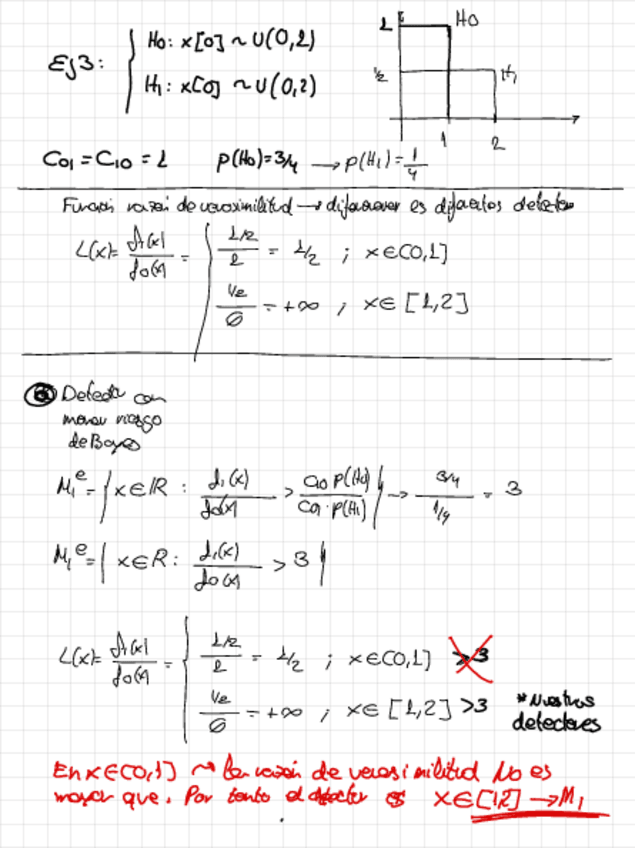 Ej3:
H0: x[0] ~ U(0,2)
H1: x[0] ~ U(0,2)
1
H0
1/2
H1
1
2
C01 = C10 = 1 P(H0)=3/4 → P(H1)=1/4
Función razón de verosimilitud → diferentes detector
L(x)= f1(x)/f0(x) =
1/2/1 = 1/2 ; x∈[0,1]
1/2/0 = +∞ ; x∈[1,2]
a Detector con
menor riesgo
de Bayes
M1^e = { x∈R : f1(x)/f0(x) > C10 P(H0)/C01·P(H1) } → 3/4/1/4 = 3
M1^e = { x∈R : f1(x)/f0(x) > 3 }
L(x)= f1(x)/f0(x) =
1/2/1 = 1/2 ; x∈[0,1] >3
1/2/0 = +∞ ; x∈[1,2] >3
*Nuestros
detectores
En x∈[0,1] → la razón de verosimilitud No es
mayor que. Por tanto el detector es x∈[1,2] → M1